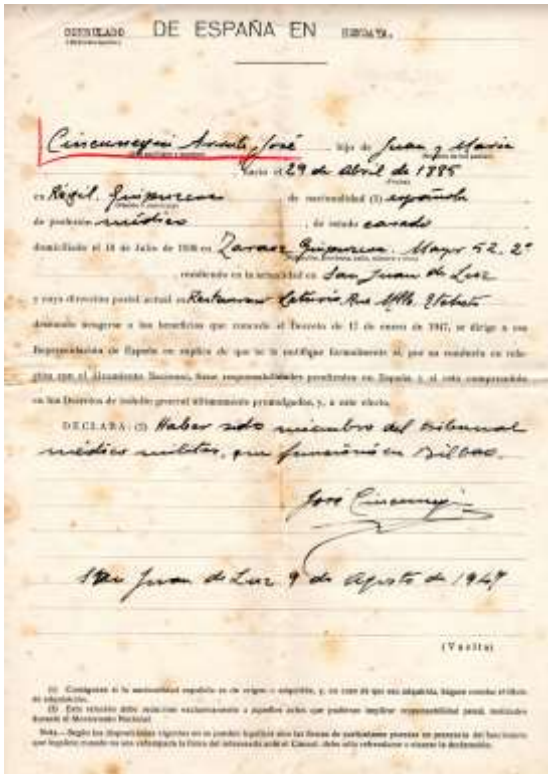 CONSULADO DE ESPAÑA EN HENDAYA.
Cincunegui José, hijo de Juan y María
nació el 29 de abril de 1885
en Régil. Guipuzcoa, de nacionalidad (1) española
de profesión médico, de estado casado
domiciliado el 18 de Julio de 1936 en Zarauz Guipuzcoa. Mayor 52. 2º
residiendo en la actualidad en San Juan de Luz
y cuya dirección postal actual es Restaurant Rue Mlle. Etcheto
deseando acogerse a los beneficios que concede el Decreto de 17 de enero de 1947, se dirige a esa
Representación de España en súplica de que se le notifique formalmente si, por su conducta en rela-
ción con el Alzamiento Nacional, tiene responsabilidades pendientes en España y si está comprendido
en los Decretos de indulto general últimamente promulgados, y, a este efecto,
DECLARA: (2) Haber sido miembro del tribunal
médico militar, que funcionó en Bilbao.
José Cincunegui
San Juan de Luz 9 de Agosto de 1947
(Vuelta)
(1) Consígnese si la nacionalidad española es de origen o adquirida, y, en caso de que sea adquirida, hágase constar el título
de adquisición.
(2) Esta relación debe referirse exclusivamente a aquellos actos que pudieran implicar responsabilidad penal, realizados
durante el Movimiento Nacional.
Nota.— Según las disposiciones vigentes no se pueden legalizar más las firmas de particulares puestas en presencia del funcionario